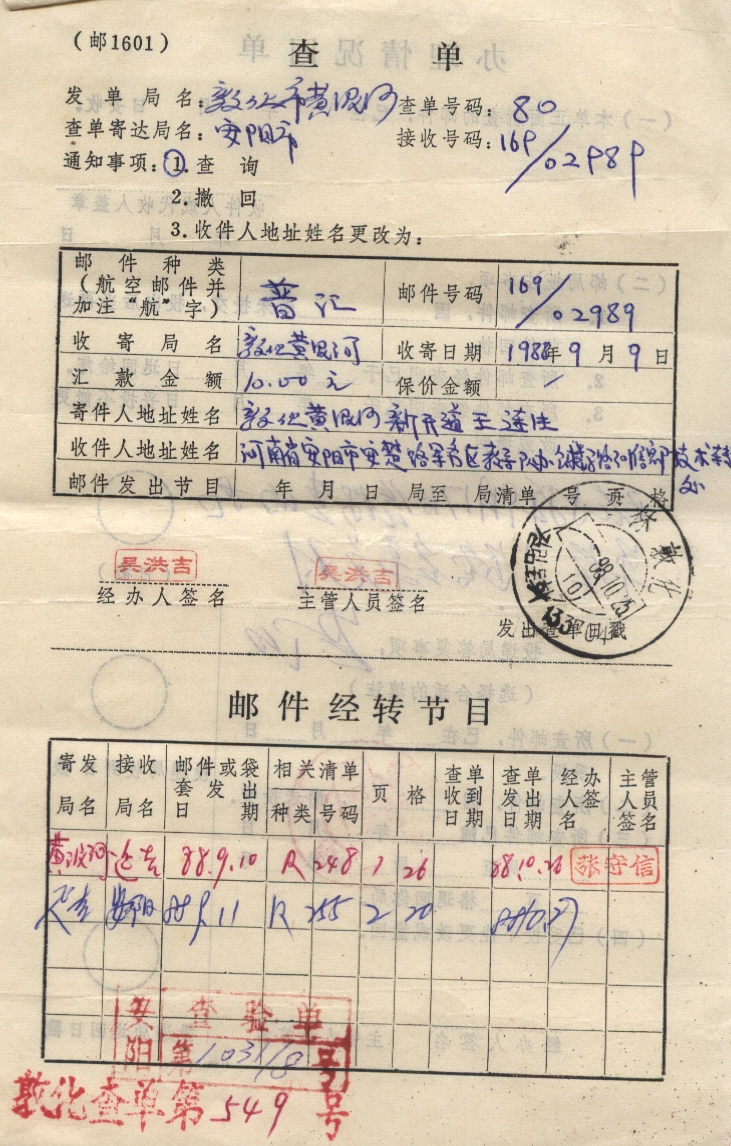 (邮1601)
查 单
发单局名：敦化市黄泥河 查单号码：80
查单寄达局名：安阳市 接收号码：169/02989
通知事项：①.查 询
2.撤 回
3.收件人地址姓名更改为：
邮件种类(航空邮件并加注“航”字) 普汇 邮件号码 169/02989
收寄局名 敦化黄泥河 收寄日期 1988年9月9日
汇款金额 10.00元 保价金额 /
寄件人地址姓名 敦化黄泥河新开道王连生
收件人地址姓名 河南省安阳市安楚路
邮件发出节目 年 月 日 局至 局清单 号 页 格
吴洪吉 吴洪吉
经办人签名 主管人员签名
发出查单日戳
敦化
88.10.25
邮件经转节目
寄发局名 接收局名 邮件或袋套发出日期 相关清单 种类 号码 页 格 查单收到日期 查单发出日期 经办人签名 主管人员签名
黄泥河 88.9.10 R 248 1 26 88.10.26 张守信
安阳 11 R 255 2 20
安阳 查验单
第 号
敦化查单第549号